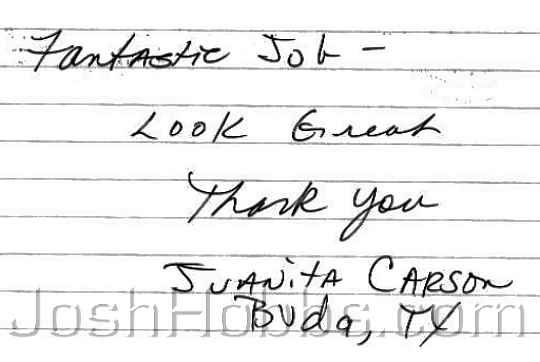 Fantastic Job -
Look Great
Thank you
Juanita Carson
Buda, TX
JoshHobbs.com